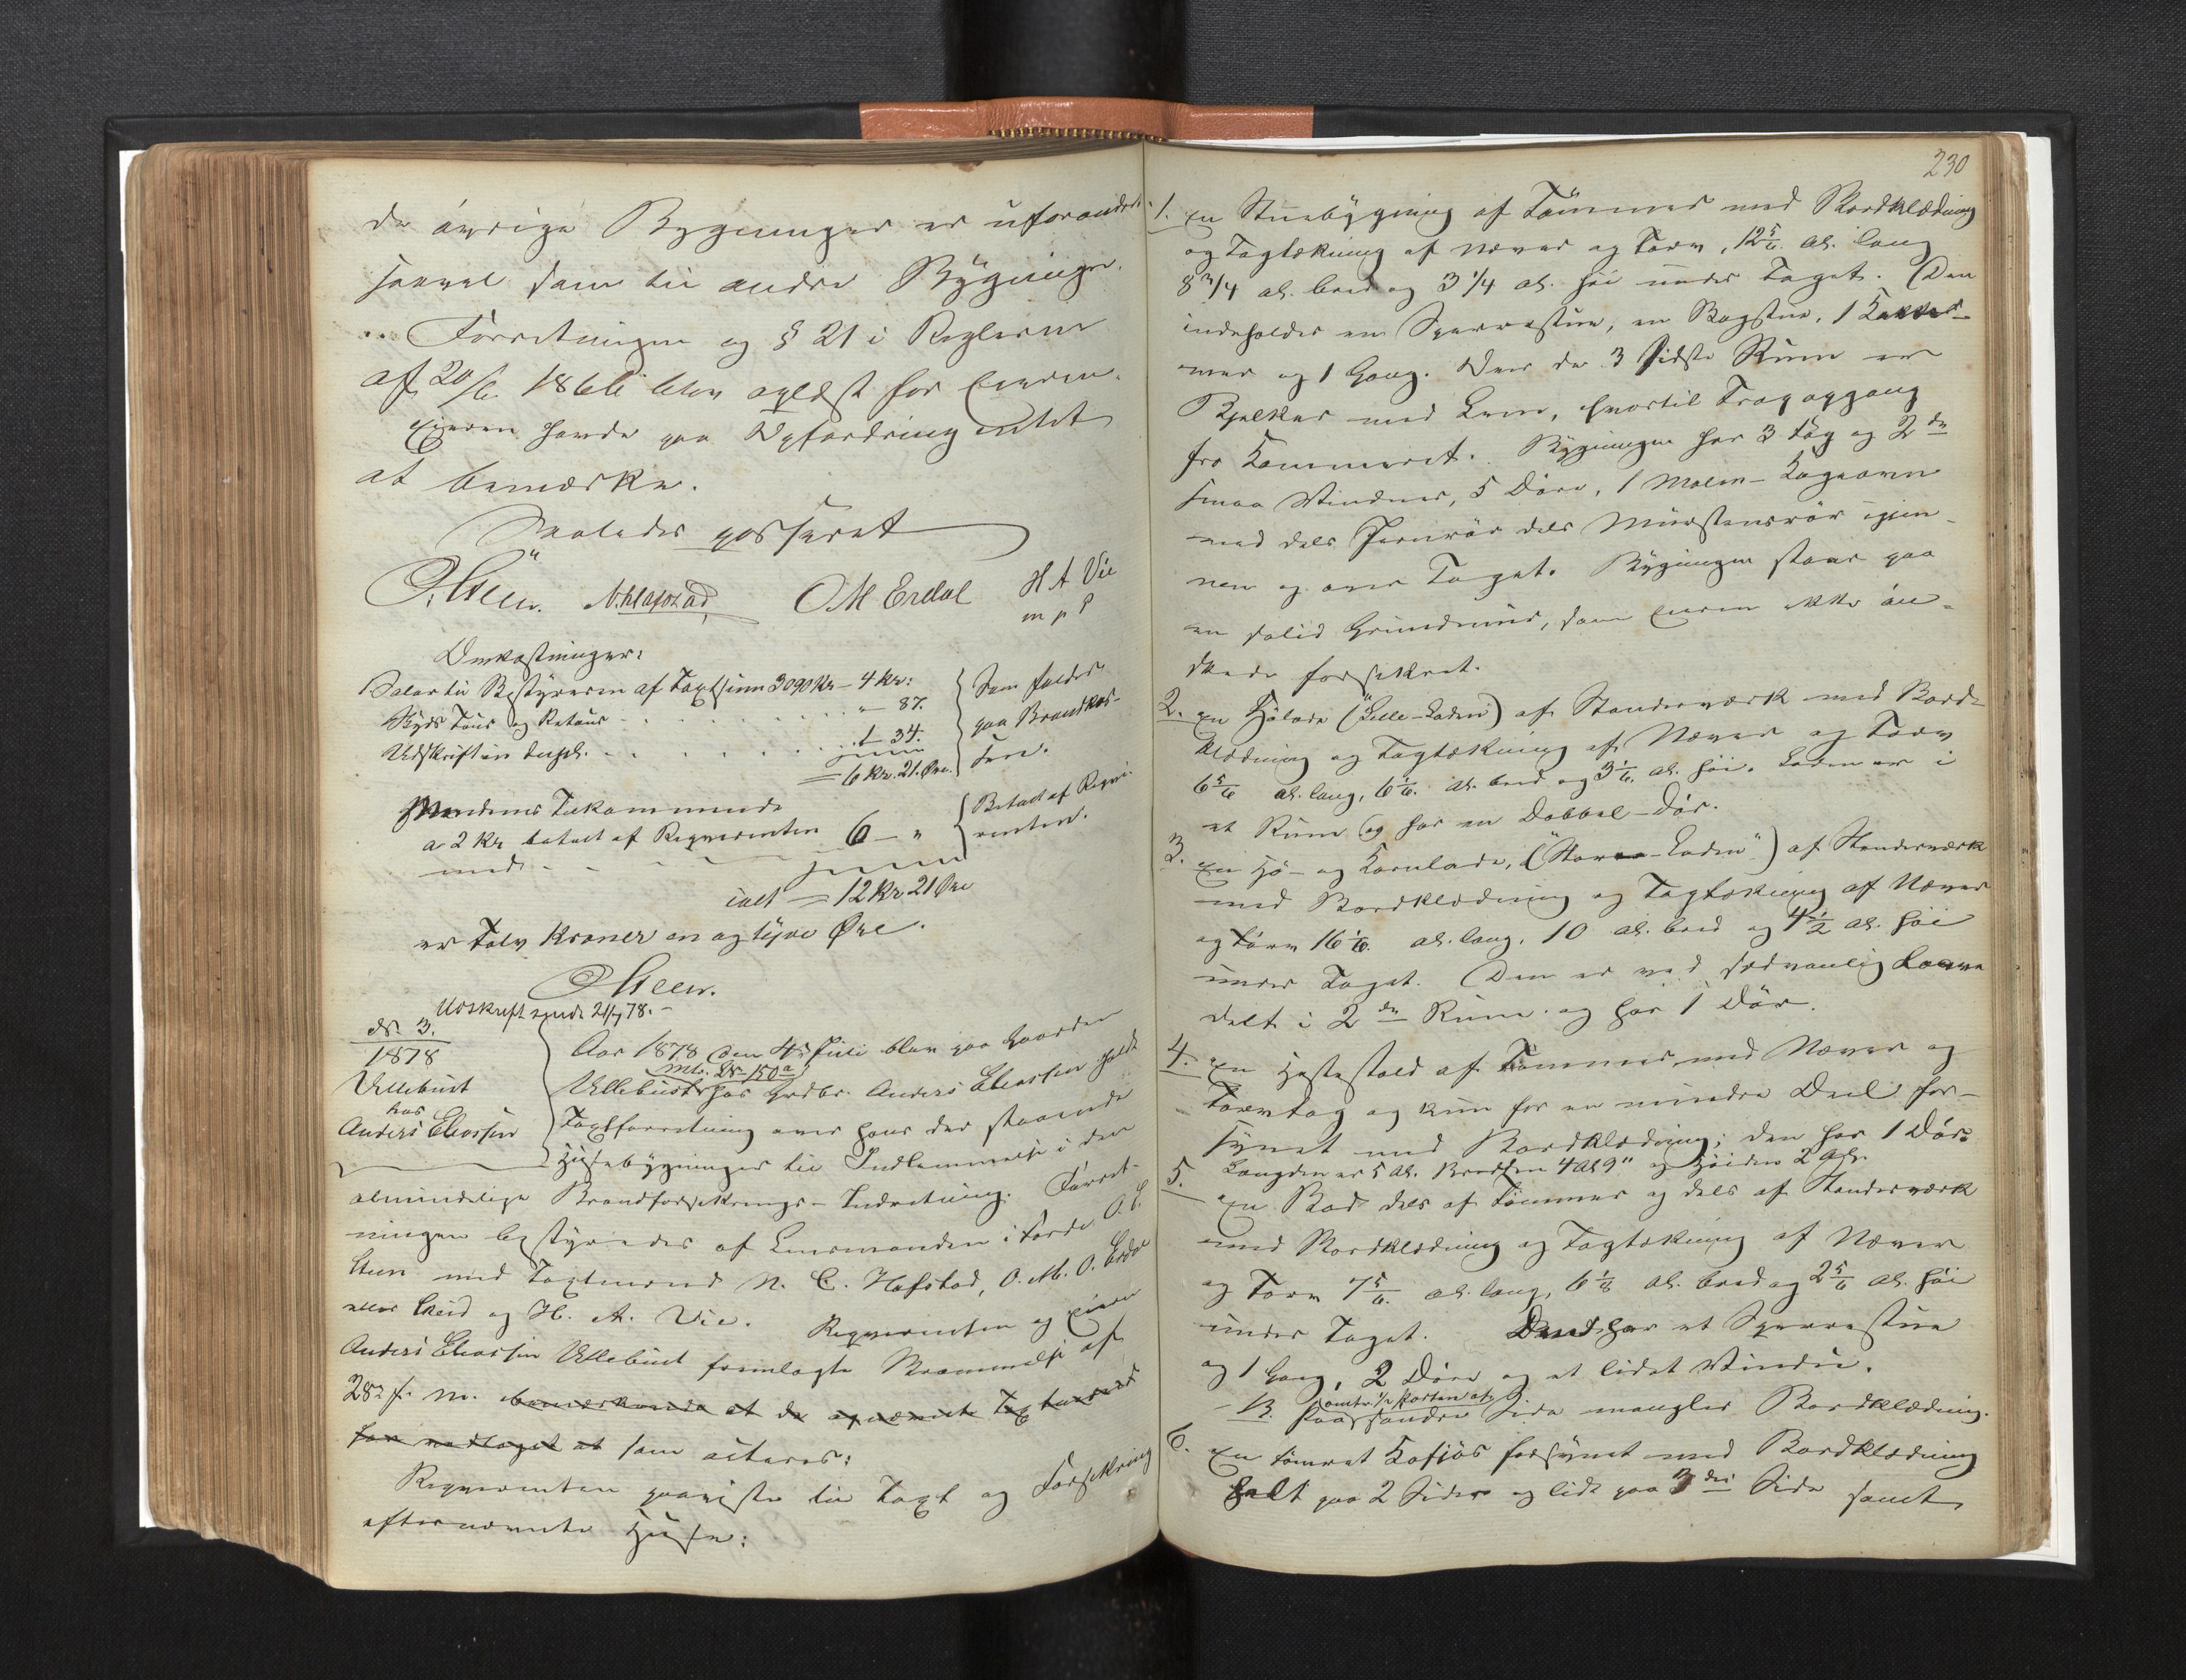 de øvrige Bygninger er uforandret
saavel som til andre Bygninger.
Forretningen og § 21 i Reglerne
af 20/6 1866 blev oplæst for Eieren.
Eieren havde paa Opfordring intet
at bemærke.
Saaledes passeret
O. Steen. N. Hafstad, O M Erdal H A Vie
m p P
Omkostninger:
Salar til Bestyreren af Taxtsum 3090 Kr – 4 Kr:
Skyds Tour og Retour - - - „ – 87.
Udskrift in dupl. - - - 1 – 34.
= 6 Kr. 21. Øre.
Som falder
paa Brandkas-
sen.
Mændenes Tilkommende
a 2 Kr betalt af Reqvirenten 6 – „
med - -
Betalt af Reqvi-
renten.
ialt = 12 Kr 21 Øre
er Tolv Kroner en og tyve Øre.
O Steen.
Udskrift sendt 21/7 78. -
No. 3.
1878
Vellebust
hos
Anders Eliassen
Aar 1878 den 4de Juli blev paa Gaarden
Mtr. No 150a
Vellebust hos Grdbr. Anders Eliassen holdt
Taxtforretning over hans der staaende
Husebygninger til Indlemmelse i den
almindelige Brandforsikrings-Indretning. Forret-
ningen bestyredes af Lensmanden i Førde O. C.
Steen med Taxtmænd N. C. Hafstad, O. M. O. Erdal
og H. A. Vie. Reqvirenten og Eieren
Anders Eliassen Vellebust fremlagte Skrammelse af
28de f. M. bemærkende at de opnævnte Taxtmænd
har modtaget at som acteres:
Reqvirenten paaviste til Taxt og Forsikring
efternævnte Huse:
230
1. En Stuebygning af Tømmer med Bordklædning
og Tagtækning af Næver og Torv, 12 5/6. al. lang
8 3/4 al. bred og 3 1/4 al. høi under Taget. Den
indeholder en Sperrestue, en Bagstue, 1 Kam-
mer og 1 Gang. Over de 3 sidste Rum er
Bjelker med Lem, hvortil Trapopgang
fra Kammeret. Bygningen har 3 Fag og 2de
smaa Vinduer, 5 Døre, 1 Malm-Kogeovn
med dels Jernrør dels Murstensrør igjen-
nem og over Taget. Bygningen staar paa
en solid Grundmur, som Eieren ikke øn-
skede forsikret.
2. En Hølade (Lille-Laden) af Stænderværk med Bord-
klædning og Tagtækning af Næver og Torv
6 5/6 al. lang, 6 1/6. al. bred og 3 1/6. al. høi. Laden er i
et Rum og har en Dobbel-Dør.
3. En Hø- og Kornlade, ("Store-Laden") af Stenderværk
med Bordklædning og Tagtækning af Næver
og Torv 16 1/6. al. lang, 10 al. bred og 4 1/2 al. høi
under Taget. Den er ved sædvanlig Laave
delt i 2de Rum og har 1 Dør.
4. En Hestestald af Tømmer med Næver og
Torvtag og kun for en mindre Deel for-
synet med Bordklædning; den har 1 Dør.
Længden er 5 Al. Bredden 4 Al 9" og Høiden 2 Al
5. En Bod dels af Tømmer og dels af Stenderværk
med Bordklædning og Tagtækning af Næver
og Torv 7 5/6. al. lang, 6 1/8 al. bred og 2 5/6 al. høi
under Taget. Den har et Sperrestue
og 1 Gang, 2 Døre og et lidet Vindu.
omtr. 1/2 Parten af
Paa søndre Side mangler Bordklædning.
6. En tømret Kofjøs forsynet med Bordklædning
helt paa 2 Sider og lidt paa 3die Side samt